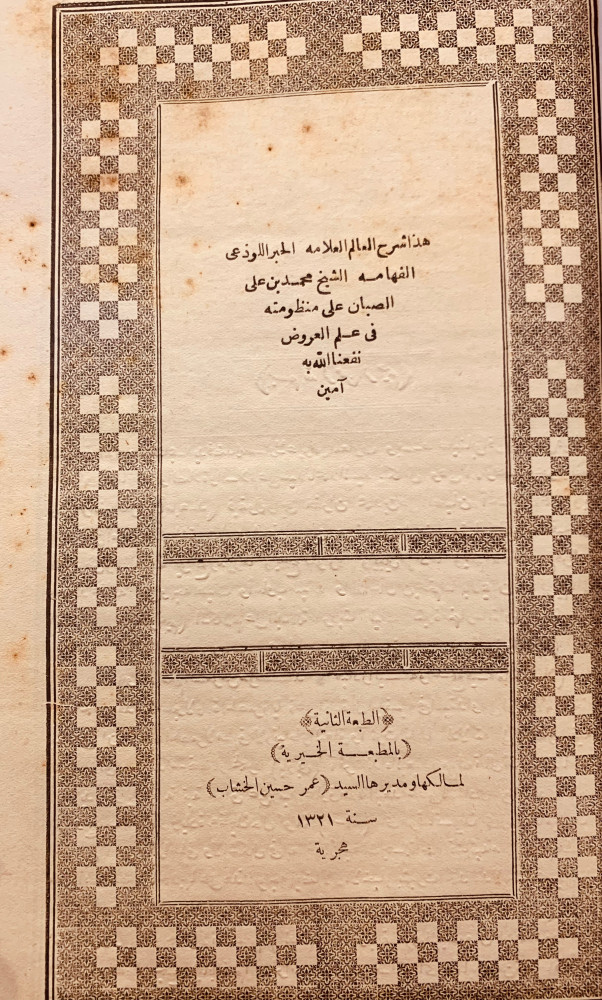 هذا شرح العالم العلامه الحبر اللوذعى
الفهامه الشيخ محمد بن على
الصبان على منظومته
فى علم العروض
نفعنا الله به
آمين
﴿الطبعة الثانية﴾
(بالمطبعة الخيرية)
لمالكها ومديرها السيد (عمر حسين الخشاب)
سنة ١٣٢١
هجرية